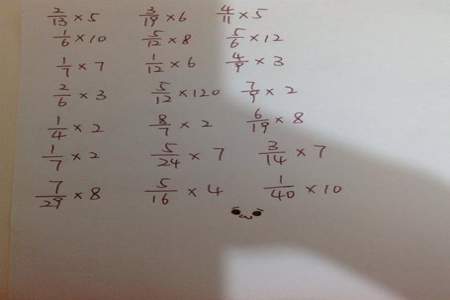 2/13 × 5 3/19 × 6 4/11 × 5
1/6 × 10 5/12 × 8 5/6 × 12
1/7 × 7 1/12 × 6 4/9 × 3
2/6 × 3 5/12 × 120 7/9 × 2
1/4 × 2 8/7 × 2 6/19 × 8
1/7 × 2 5/24 × 7 3/14 × 7
7/29 × 8 5/16 × 4 1/40 × 10